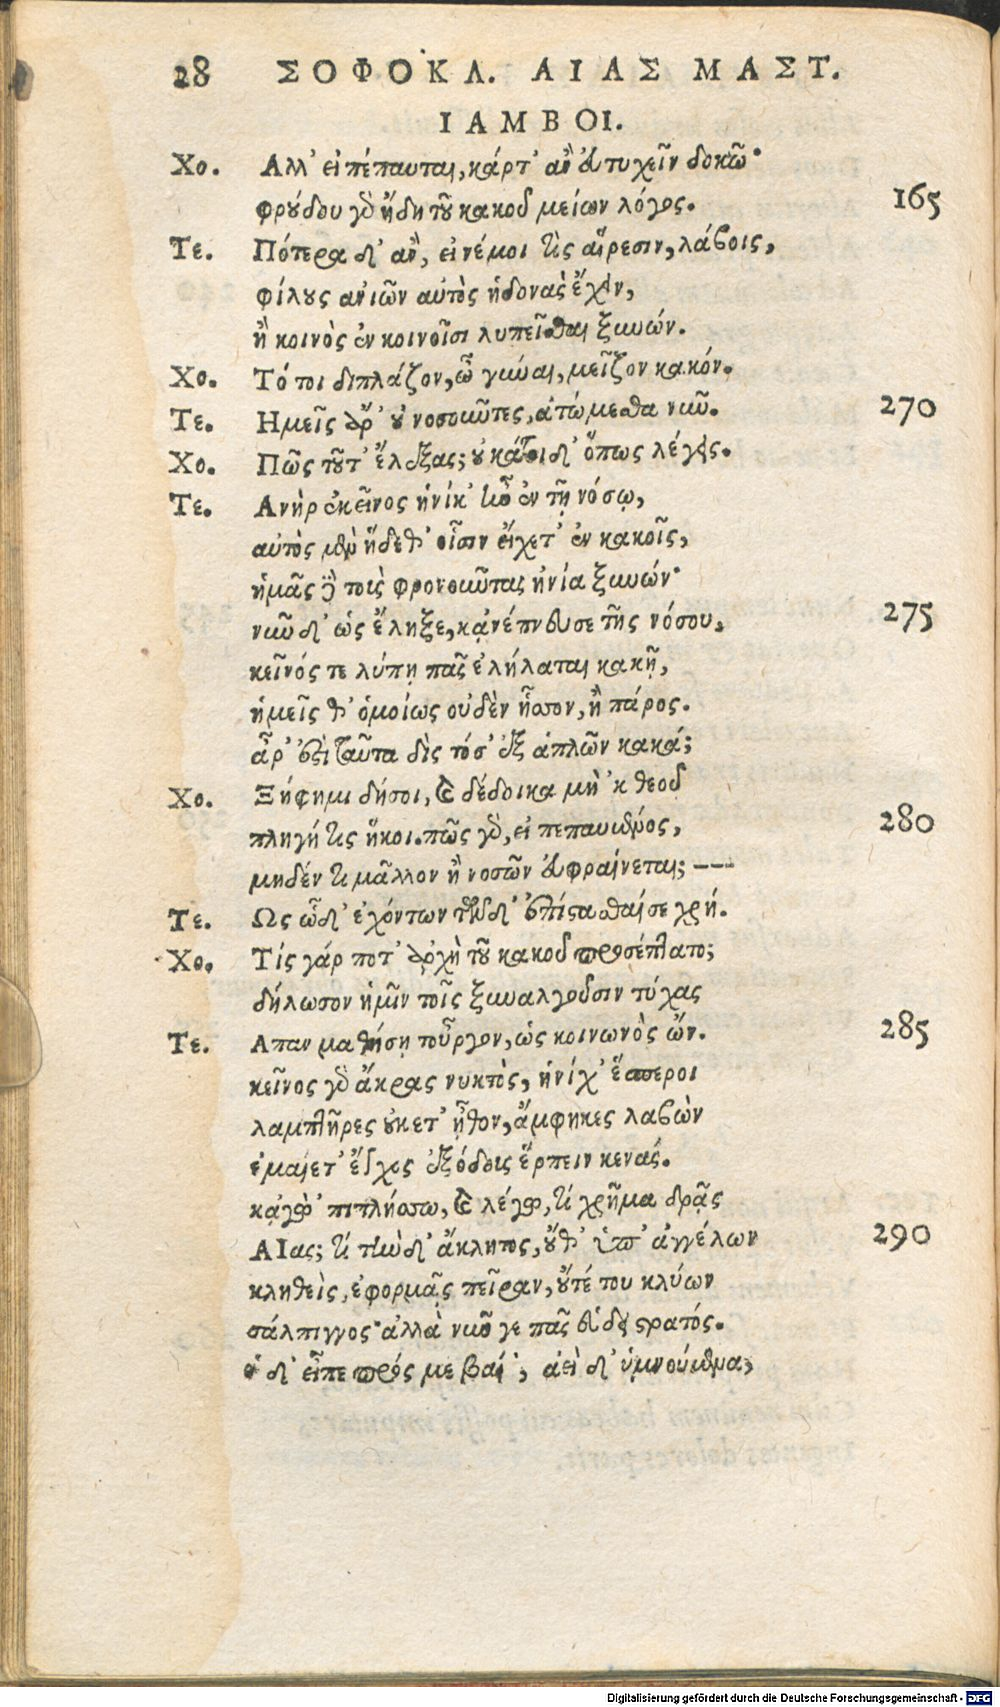 28 ΣΟΦΟΚΛ. ΑΙΑΣ ΜΑΣΤ.
ΙΑΜΒΟΙ.
Χο. Αλλ' εἰ πέπαυται, κάρτ' ἂν εὐτυχεῖν δοκῶ·
φρούδου γὸ ἤδη τοῦ κακοῦ μείων λόγος. 165
Τε. Πότερα δ' ἂν, εἰ νέμοι τὶς αἵρεσιν, λάβοις,
φίλους ἀνιῶν αὐτὸς ἡδονὰς ἔχειν,
ἢ κοινὸς ἐν κοινοῖσι λυπεῖσθαι ξυνών.
Χο. Τό τοι διπλάζον, ὦ γύναι, μεῖζον κακόν.
Τε. Ημεῖς ἄρ' οὐ νοσοῦντες, ἀτώμεσθα νῦν. 270
Χο. Πῶς τοῦτ' ἔλεξας; οὐ κάτοιδ' ὅπως λέγεις.
Τε. Ανὴρ ἐκεῖνος ἡνίκ' ἦν ἐν τῇ νόσῳ,
αὐτὸς μὲν ἥδεθ' οἷσιν εἴχετ' ἐν κακοῖς,
ἡμᾶς δὲ τοὺς φρονοῦντας ἠνία ξυνών·
νῦν δ' ὡς ἔληξε, κᾀνέπνευσε τῆς νόσου, 275
κεῖνός τε λύπῃ πᾶς ἐλήλαται κακῇ,
ἡμεῖς θ' ὁμοίως οὐδὲν ἧσσον, ἢ πάρος.
ἆρ' ἐστὶ ταῦτα δὶς τόσ' ἐξ ἁπλῶν κακά;
Χο. Ξήφημι δήσοι, καὶ δέδοικα μὴ 'κ θεοῦ
πληγή τις ἥκοι. πῶς γὸ, εἰ πεπαυμένος, 280
μηδέν τι μᾶλλον ἢ νοσῶν εὐφραίνεται; ---
Τε. Ως ὧδ' ἐχόντων τῶνδ' ἐπίστασθαί σε χρή.
Χο. Τίς γάρ ποτ' ἀρχὴ τοῦ κακοῦ προσέπτατο;
δήλωσον ἡμῖν τοῖς ξυναλγοῦσιν τύχας
Τε. Απαν μαθήσῃ τοὖργον, ὡς κοινωνὸς ὤν. 285
κεῖνος γὸ ἄκρας νυκτὸς, ἡνίχ' ἕσπεροι
λαμπτῆρες οὐκετ' ᾖθον, ἄμφηκες λαβὼν
ἐμαίετ' ἔγχος ἐξόδους ἕρπειν κενάς.
κᾀγὼ 'πιπλήσσω, καὶ λέγω, τί χρῆμα δρᾷς
ΑΙας; τί τήνδ' ἄκλητος, οὔθ' ὑπ' ἀγγέλων 290
κληθεὶς, ἐφορμᾷς πεῖραν, οὔτέ του κλύων
σάλπιγγος· ἀλλὰ νῦν γε πᾶς εὕδει στρατός.
ὁ δ' εἶπε πρός με βαί', ἀεὶ δ' ὑμνούμενα,
Digitalisierung gefördert durch die Deutsche Forschungsgemeinschaft - DFG